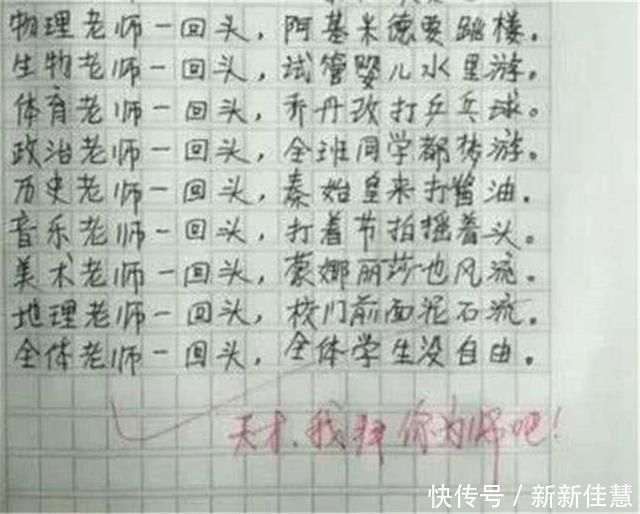 物理老师一回头,阿基米德要跳楼.
生物老师一回头,试管婴儿水里游。
体育老师一回头,乔丹改打乒乓球。
政治老师一回头,全班同学都梦游。
历史老师一回头,秦始皇来打酱油.
音乐老师一回头,打着节拍摇着头。
美术老师一回头,蒙娜丽莎也风流.
地理老师一回头,校门前面泥石流.
全体老师一回头,全体学生没自由.
天才.我拜你为师吧!
快传号/新新佳慧